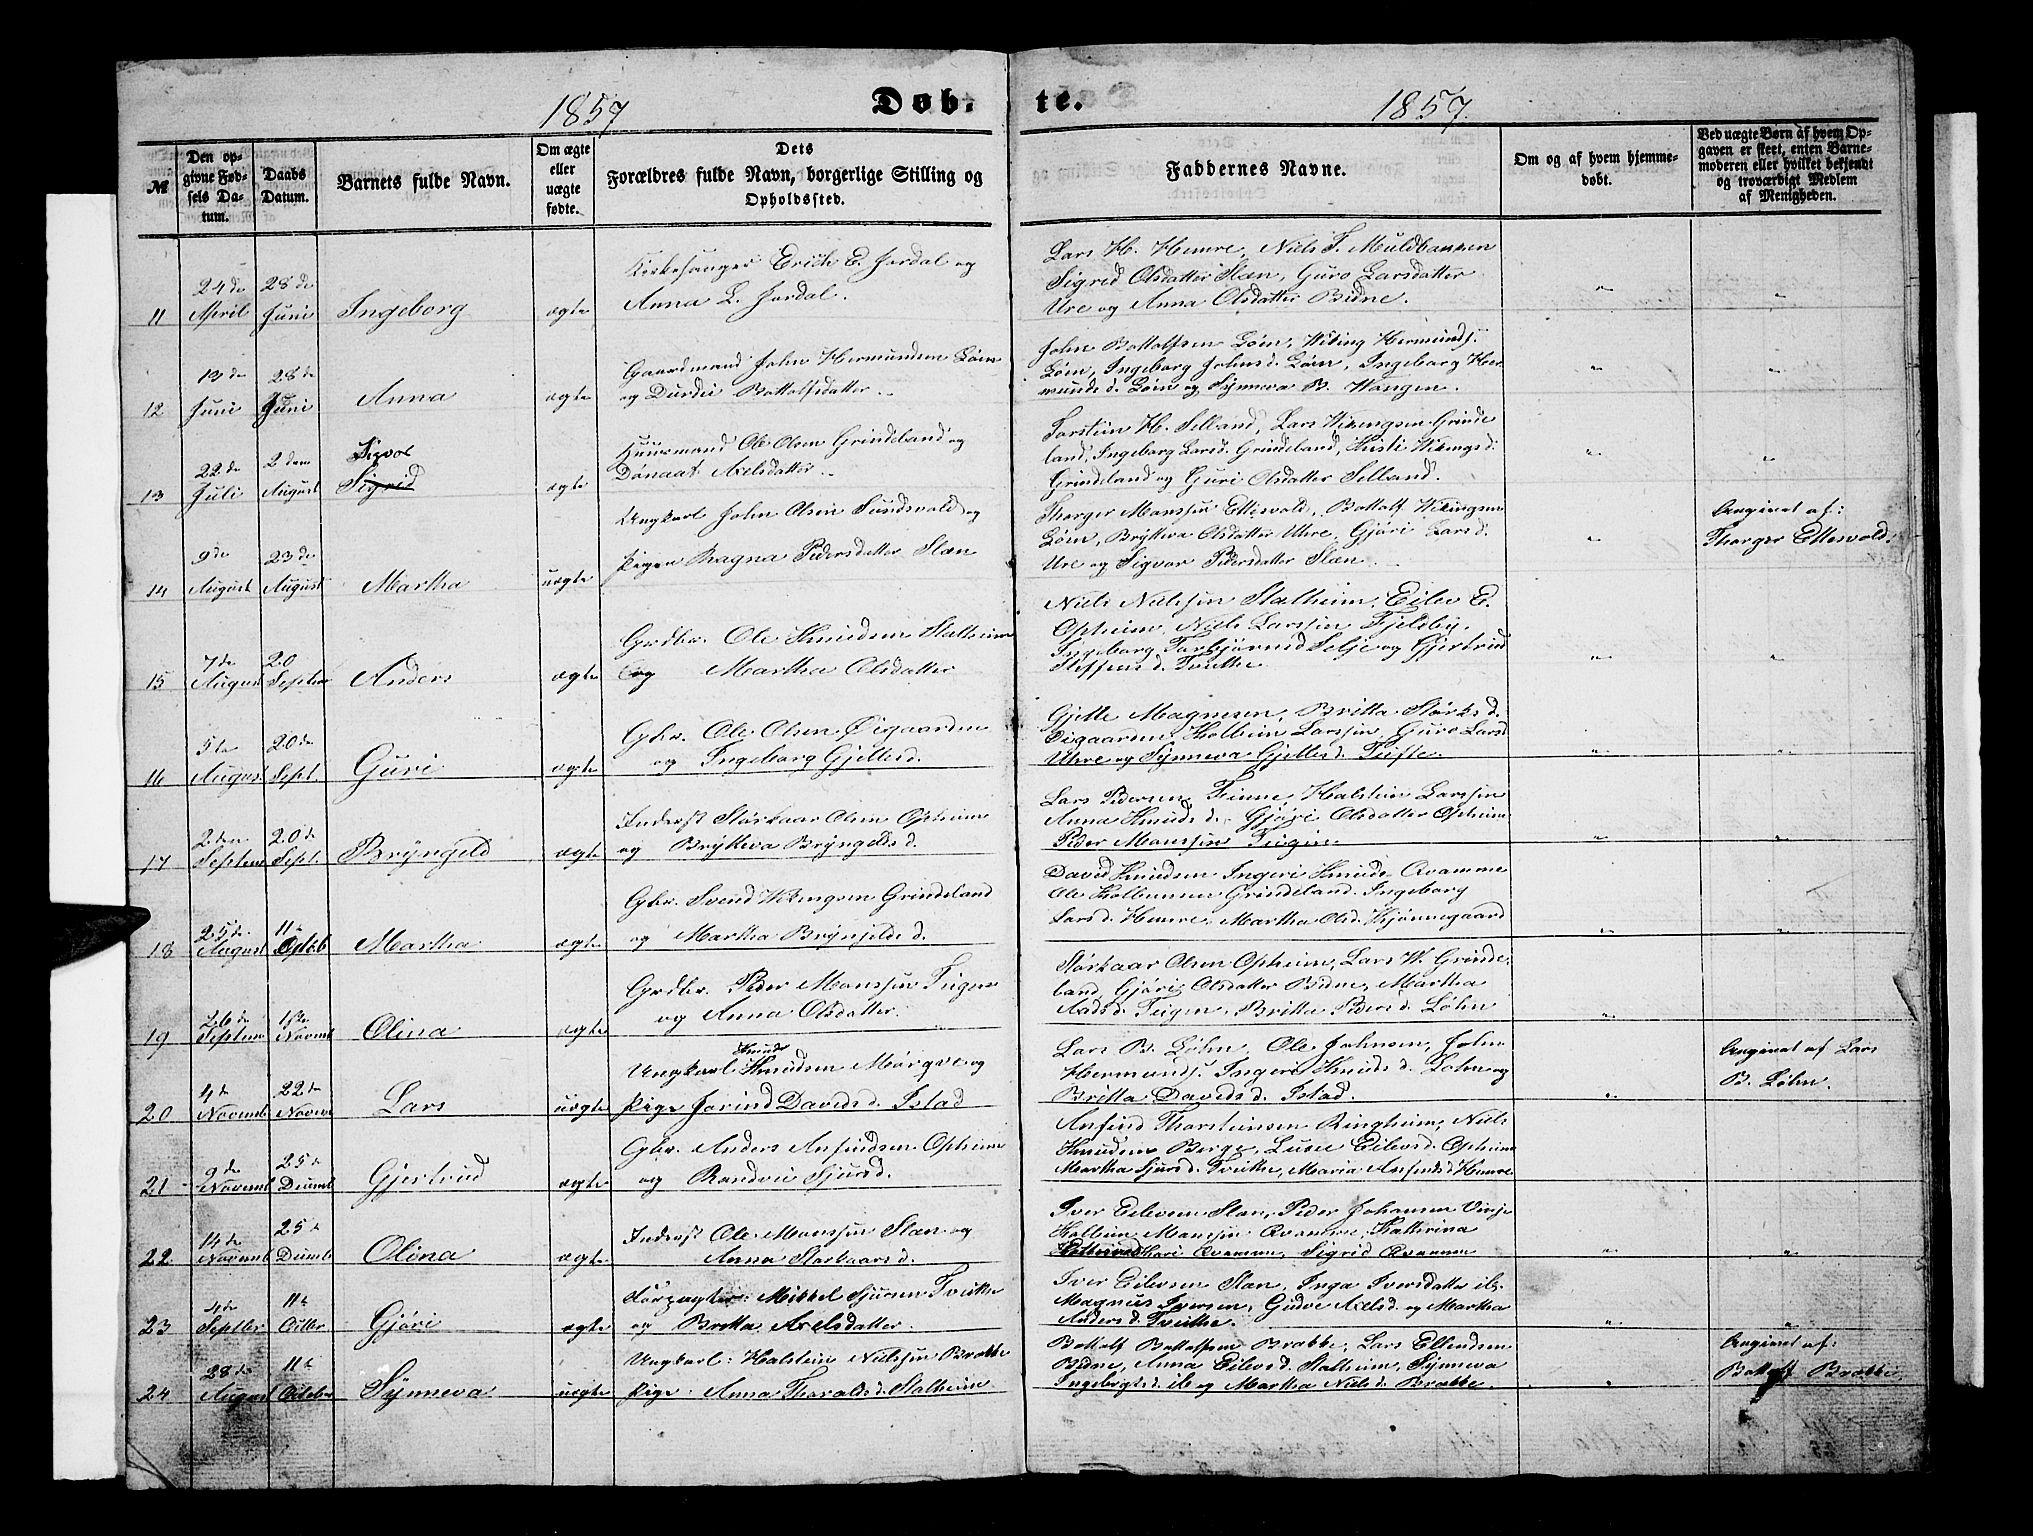 1857 Døb- te. 1857.
№
Den opgivne Fødsels Datum.
Daabs Datum.
Barnets fulde Navn.
Om ægte eller uægte fødte.
Dets Forældres fulde Navn, borgerlige Stilling og Opholdssted.
Faddernes Navne.
Om og af hvem hjemmedøbt.
Ved uægte Børn af hvem Opgaven er skeet, enten Barnemoderen eller hvilket bekjendt og troværdigt Medlem af Menigheden.
11 24de April 28de Juni Ingeborg ægte
Kirkesanger Erich E. Jordal og
Anna L. Jordal.
Lars H. Humre, Niels T. Muldbannen
Sigrid Olsdatter Slæn, Guro Larsdatter
Ure og Anna Olsdatter Bidne.
12 13de Juni 28de Juni Anna ægte
Gaardmand John Hermundsen Løen
og Durdei Bottolfsdatter.
John Bottolfsen Løen, Wiking Hermunds.
Løen, Ingeborg Johnsd. Løen, Ingeborg Her
munds d. Løen og Synneva B. Wangen.
13 22de Juli 2den August Sigvor
Sigrid ægte
Huusmand Ole Olsen Grindeland og
Dønaat Axelsdatter.
Torstein H. Selland, Lars Wikingsen Grinde
land, Ingeborg Larsd. Grindeland, Kirsti Wikingsd.
Grindeland og Guri Olsdatter Selland.
14 9de August 23de August Martha uægte
Ungkarl John Olsen Sundsvold og
Pigen Ragna Pedersdatter Slæn
Thorger Monssen Ettesvold, Bottolf Wikingsen
Løen, Bryteva Olsdatter Uhre, Gjøri Larsd.
Ure og Sigvor Pedersdatter Slæn.
Angivet af:
Thorger Ettesvold.
15 7de August 20 Septbr Anders ægte
Grdbr. Ole Knudsen Stalheim
og Martha Olsdatter
Niels Nielssen Stalheim, Eilev E.
Opheim, Niels Larssen Fjeldby,
Ingeborg Torbjørnsd Selje og Gjertrud
Steffens d. Tvitte.
16 5te August 20de Sept. Guri ægte
Gbr. Ole Olsen Øigaarden
og Ingeborg Gjellesd.
Gjelle Magnesen, Britta Størks d.
Øigaarden, Kolbein Larssen, Guro Larsd
Uhre og Synneva Gjelles d. Tufte.
17 2den Septem 20de Sept. Bryngeld ægte
Inderst Størkaar Olsen Opheim
og Brytteva Bryngelds d.
Lars Pedersen Finne, Halstein Larssen
Anna Knuds d., Gjøri Olsdatter Opheim
Peder Monssen Teigen.
18 25de August 11te Oktob Martha ægte
Gbr. Svend Wikingsen Grindeland
og Martha Brynjelds d.
David Knudsen Ingeri Knuds. Qvamme
Ole Kolbensen Grindeland, Ingeborg
Lars d. Humre, Martha Olsd. Hjønnegaard
19 26de Septem Novemb Olina ægte
Grdbr. Peder Monssen Teigen
og Anna Olsdatter.
Størkaar Olsen Opheim, Lars W. Grinde
land, Gjøri Olsdatter Bidne, Martha
Aads d. Teigen, Britta Peders d. Løhn
20 4de Novemb 22de Novem Lars uægte
Knud
Ungkarl Knudsen Mørqve og
Pige Jorind Davids d. Istad
Lars B. Løhn, Ole Johnsen, John
Hermunds., Ingeri Knuds d. Lohn og
Britta Davids d. Istad.
Angivet af Lars
B. Løhn.
21 9de Novemb 25de Decemb Gjertrud ægte
Gbr. Anders Anfindsen Opheim
og Randvei Sjursd.
Anfind Thorsteinsen Ringheim, Niels
Knudsen Berge, Lusse Eilevs d. Opheim
Martha Sjurs d. Tvitte, Maria Anfinds d Humre
22 14de Novemb 25de Decemb Olina ægte
Inderst Ole Monssen Slæn og
Anna Størkaars d.
Iver Eilevsen Slæn, Peder Johansen Vinje
Kolbein Monssen Qvamme, Katterina
Kari Qvammen, Sigrid Qvammen
23 4de Septbr 11te Octbr Gjøri ægte
Forpagter: Mikkel Sjursen Tvitte
og Britta Axelsdatter.
Iver Eilevsen Slæn, Inga Iversdatter ib.
Magnus Iversen, Gudve Axels d. og Martha
Anders d. Tvitte.
24 28de August 11te October Synneva uægte
Ungkarl: Halstein Nielssen Brække
Pige: Anna Thorolds d. Stalheim
Bottolf Bottolfsen Brække, Lars Ellendsen
Bidne, Anna Eilevs d. Stalheim, Synneva
Ingebrigts d. ib og Martha Niels d. Brække.
Angivet af:
Bottolf Brække